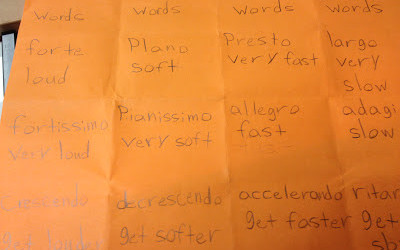 words
words
words
words
forte
loud
Piano
soft
Presto
very fast
largo
very
slow
fortissimo
very loud
Pianissimo
very soft
allegro
fast
adagi
slow
Crescendo
get louder
decrescendo
get softer
accelerando
get faster
ritar
get